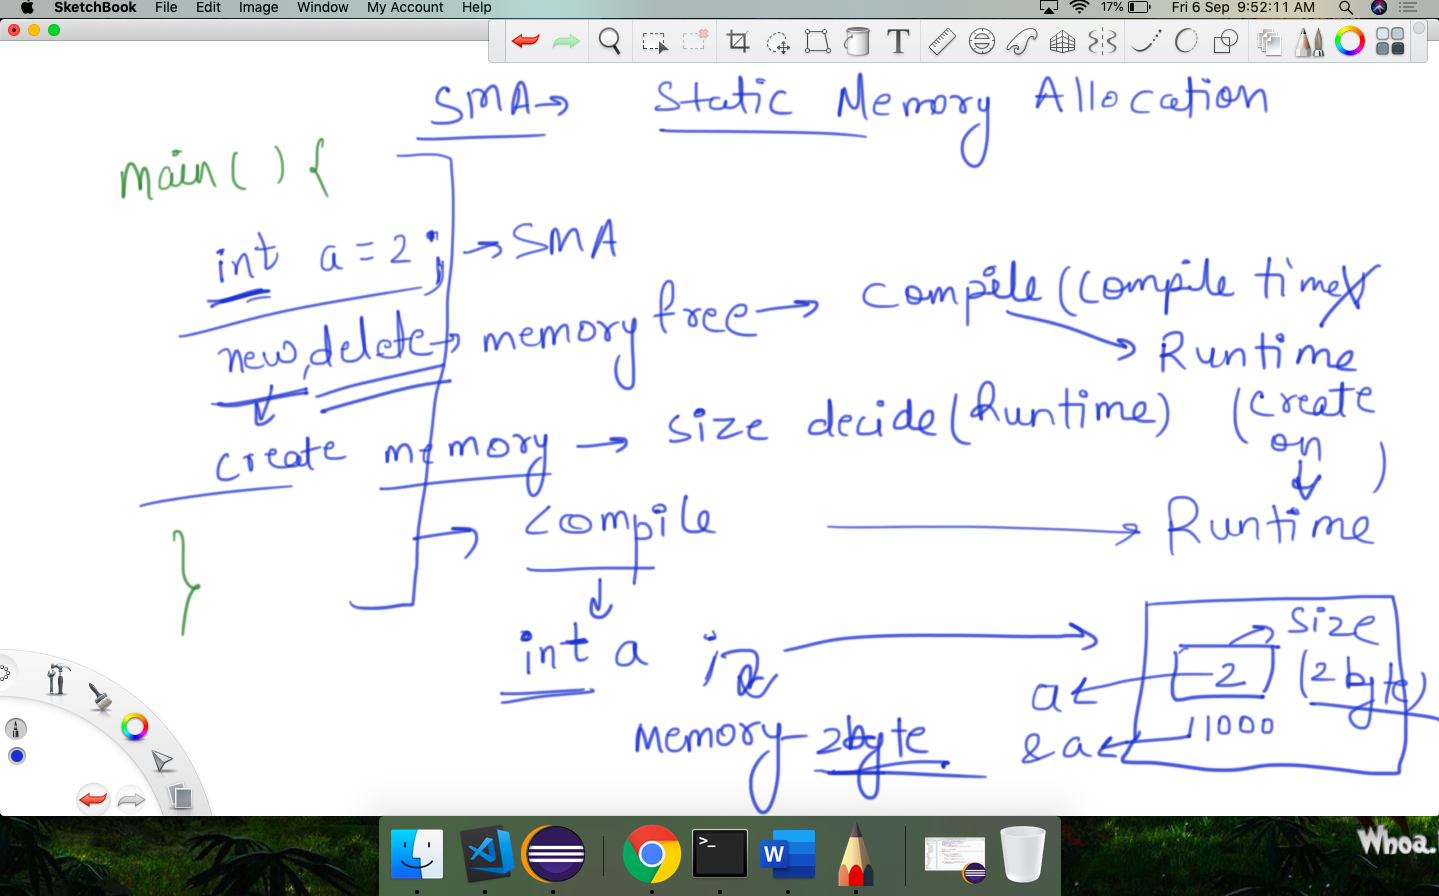 SketchBook File Edit Image Window My Account Help 17% Fri 6 Sep 9:52:11 AM
SMA→ Static Memory Allocation
main() {
int a = 2; → SMA
new, delete → memory free → compile (compile time)
Runtime
create memory → size decide (Runtime) (create
on
)
compile → Runtime
}
int a
size
a ← 2 (2 byte)
memory - 2byte
&a ← 1000
W
Whoa.